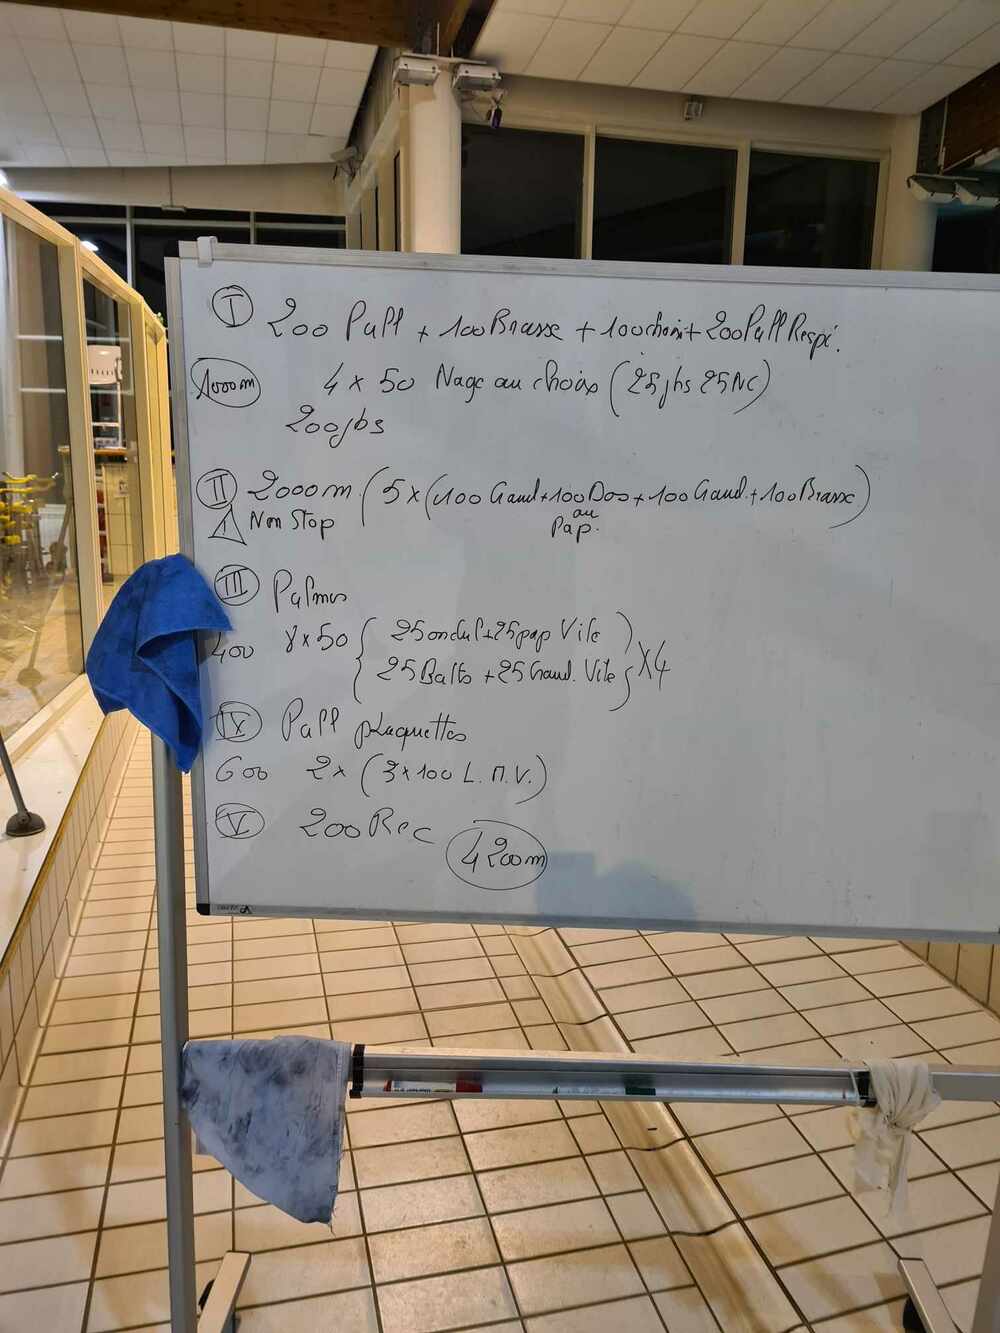 I 200 Pull + 100 Brasse + 100 choix + 200 Pull Respi.
1000m 4 x 50 Nage au choix (25 jbs 25 NC)
200 jbs
II 2000m (5 x (100 Gaud + 100 Dos + 100 Gaud. + 100 Brasse)
! Non Stop ou Pap.
III Palmes
400 8 x 50 { 25 ondul + 25 pap Vite
25 Batts + 25 Gaud. Vite } X4
IX Pull plaquettes
600 2 x (3 x 100 L.M.V.)
V 200 Rec
4200m